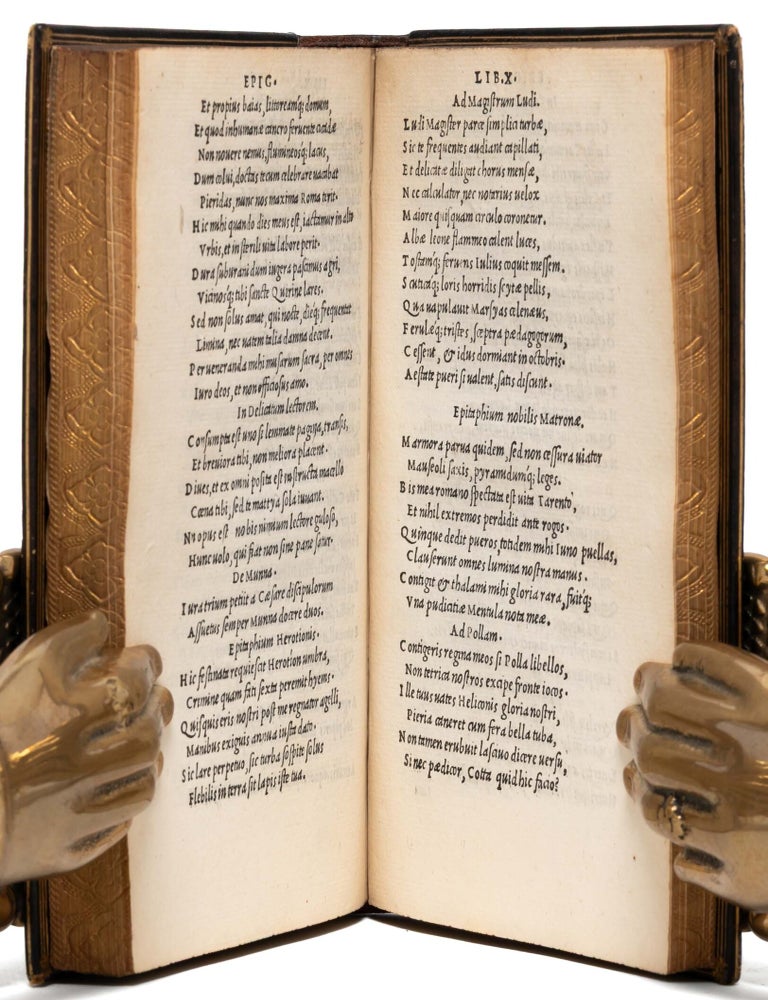 EPIG.
Et propius baias, littoreamq; domum,
Et quod inhumanæ cancro feruente cicadæ
Non nouere nemus, flumineosq; lacus,
Dum colui, doctas tecum celebrare uacabat
Pieridas, nunc nos maxima Roma terit.
Hic mihi quando dies meus est, iactamur in alto
Vrbis, et in sterili uita labore perit.
Dura suburani dum iugera pascimus agri,
Vicinosq; tibi sancte Quirine lares.
Sed non solus amat, qui nocte, dieq; frequentat
Limina, nec uatem talia damna decent.
Per ueneranda mihi musarum sacra, per omnes
Iuro deos, et non officiosus amo.
In Delicatum lectorem.
Consumpta est uno si lemmate pagina, transis,
Et breuiora tibi, non meliora placent.
Diues, et ex omni posita est instructa macello
Cœna tibi, sed te mattya sola iuuant.
Non opus est nobis nimium lectore guloso,
Hunc uolo, qui fiat non sine pane satur.
De Munna.
Iura trium petiit a Cæsare discipulorum
Assuetus semper Munna docere duos.
Epitaphium Herotionis.
Hic festinata requiescit Herotion umbra,
Crimine quam fati sexta peremit hyems.
Quisquis eris nostri post me regnator agelli,
Manibus exiguis annua iusta dato.
Sic lare perpetuo, sic turba sospite solus
Flebilis in terra sit lapis iste tua.
LIB.X.
Ad Magistrum Ludi.
Ludi Magister parce simplici turbæ,
Sic te frequentes audiant capillati,
Et delicatæ diligat chorus mensæ,
Nec calculator, nec notarius uelox
Maiore quisquam circulo coronetur.
Albæ leone flammeo calent luces,
Tostamq; feruens Iulius coquit messem.
Scuticaq; loris horridis scytæ pellis,
Qua uapulauit Marsyas celenæus,
Ferulæq; tristes, sceptra pædagogorum,
Cessent, & idus dormiant in octobris.
Aestate pueri si ualent, satis discunt.
Epitaphium nobilis Matronæ.
Marmora parua quidem, sed non cessura uiator
Mausoli saxis, pyramidumq; leges.
Bis mea romano spectata est uita Tarento,
Et nihil extremos perdidit ante rogos.
Quinque dedit pueros, totidem mihi Iuno puellas,
Clauserunt omnes lumina nostra manus.
Contigit & thalami mihi gloria rara, fuitq;
Vna pudicitiæ Mentula nota meæ.
Ad Pollam.
Contigeris regina meos si Polla libellos,
Non tetrica nostros excipe fronte iocos.
Ille tuus uates Heliconis gloria nostri,
Pieria caneret cum fera bella tuba,
Non tamen erubuit lasciuo dicere uersu,
Si nec pædicor, Cotta quid hic facio?